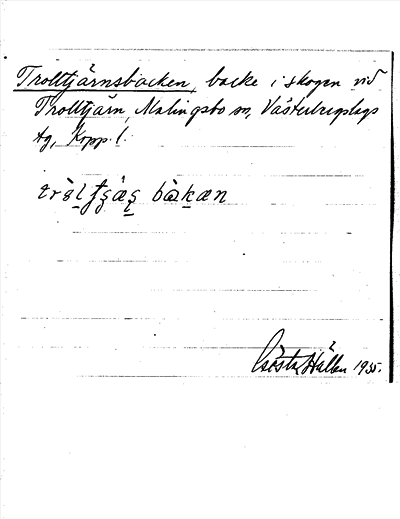 Trolltjärnsbacken, backe i skogen vid
Trolltjärn, Malingsbo sn, Västerbergslags
tg, Kopp. l.
bàkæn
Gösta Hallén 1935.